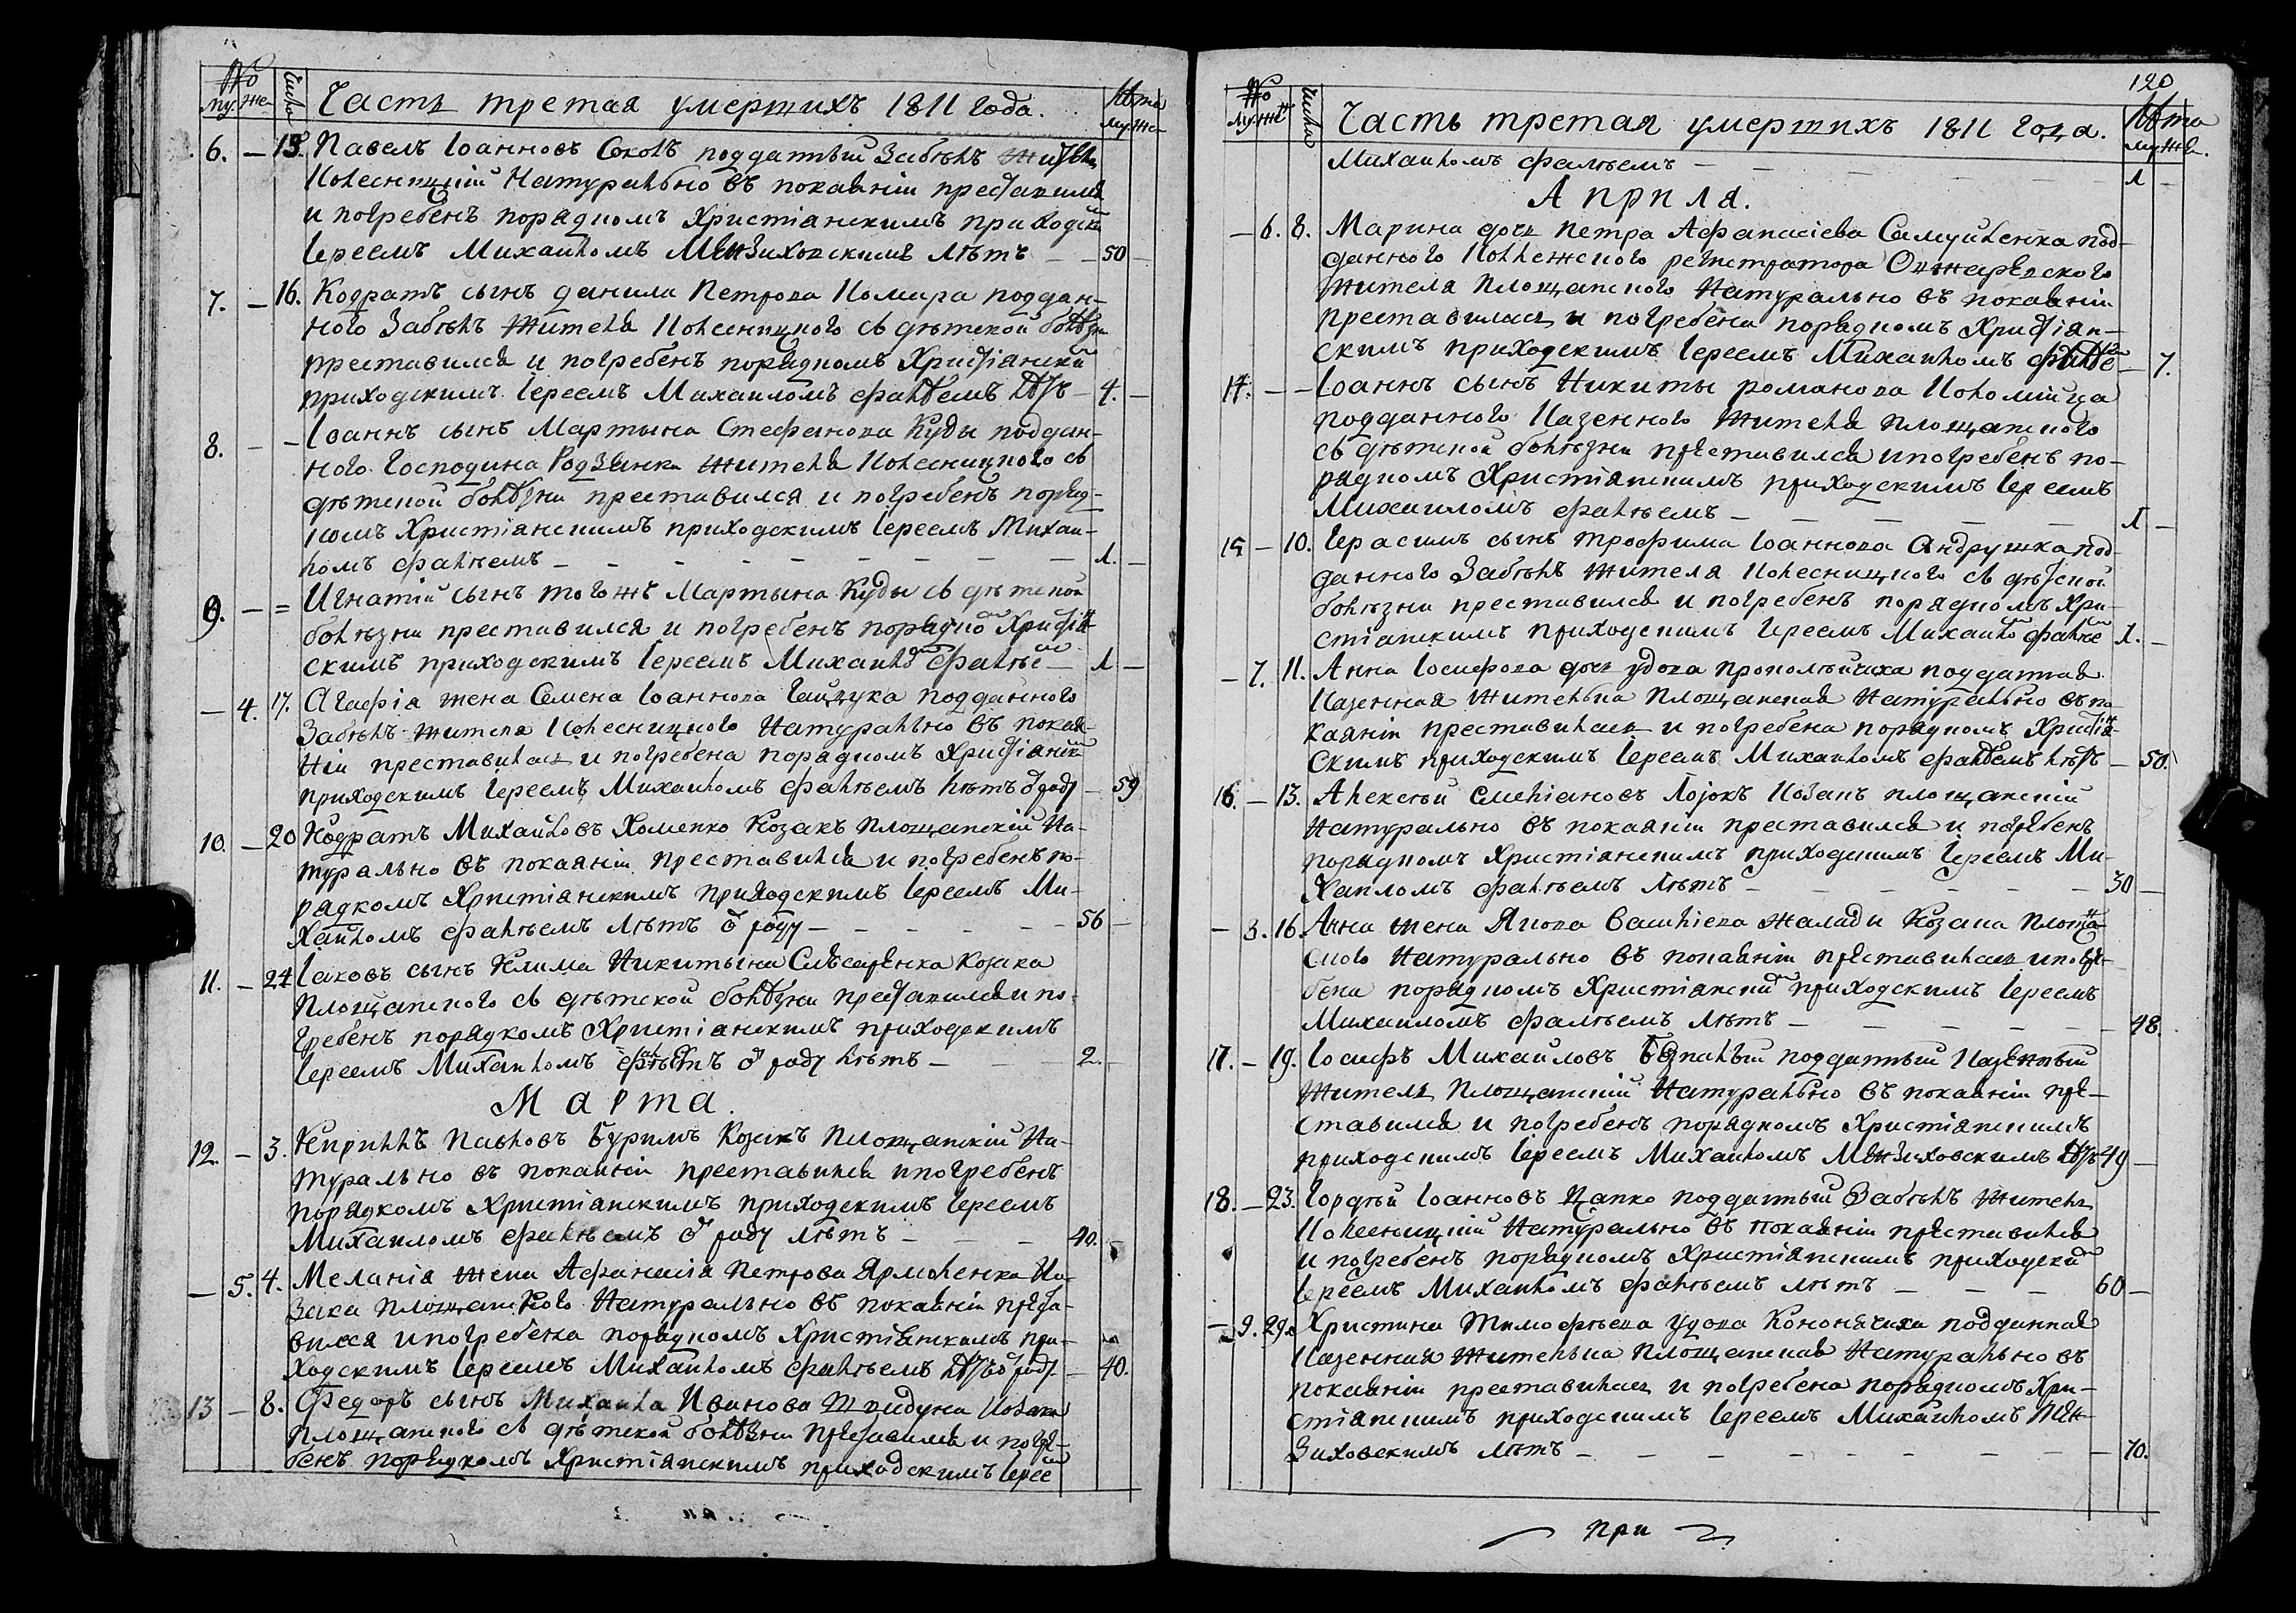 №
Му. Же.
Число
Часть третая умершихъ 1811 года.
Лѣта
Му. Же.
6. — 13. Павелъ Іоанновъ Соколъ подданный Забѣлъ житель
Колесницкій Натурально въ покаяніи преставился
и погребенъ порядкомъ Христіанскимъ приходским
Іереемъ Михаиломъ Мензиховскимъ лѣтъ — 50 —
7. — 16. Кодратъ сынъ Данила Петрова Комира поддан-
ного Забѣлъ жителя Колесницкого съ дѣтской болѣзни
преставился и погребенъ порядкомъ Христіански
приходскимъ Іереемъ Михаиломъ Фалѣемъ лѣтъ — 4. —
8. — — Іоаннъ сынъ Мартына Стефанова Куды поддан-
ного Господина Родзянки жителя Колесницкого съ
дѣтской болѣзни преставился и погребенъ поряд-
комъ Христіанскимъ приходскимъ Іереемъ Михаи-
ломъ Фалѣемъ — — — — — — — 1. —
9. — = Игнатій сынъ тогожъ Мартына Куды съ дѣтской
болѣзни преставился и погребенъ порядком Христіан-
скимъ приходскимъ Іереемъ Михаилом Фалѣем — 1 —
— 4. 17. Агафія жена Семена Іоаннова Гайдука подданного
Забѣлъ жителя Колесницкого Натурально въ покая-
ніи преставилась и погребена порядкомъ Христіанск
приходскимъ Іереемъ Михаиломъ Фалѣемъ лѣтъ от роду — 59
10. — 20 Кодратъ Михайловъ Хоменко Козакъ Площанскій На-
турально въ покаяніи преставился и погребенъ по-
рядкомъ Христіанскимъ приходскимъ Іереемъ Ми-
хаиломъ Фалѣемъ лѣтъ от роду — — — — — 56 —
11. — 24 Іаковъ сынъ Клима Никитына Слѣсаренка козака
Площанского съ дѣтской болѣзни преставился и по-
гребенъ порядкомъ Христіанскимъ приходскимъ
Іереемъ Михаиломъ Фалѣемъ от роду лѣтъ — — 2. —
Марта.
12. — 3. Кириллъ Павловъ Буримъ Козакъ Площанскій На-
турально въ покаяніи преставился и погребенъ
порядкомъ Христіанскимъ приходскимъ Іереемъ
Михаиломъ Фалѣемъ от роду лѣтъ — — — 40. —
— 5. 4. Меланія жена Афанасія Петрова Ярмоленка Ко-
зака Площанского Натурально въ покаяніи преста-
вился и погребена порядкомъ Христіанскимъ при-
ходскимъ Іереемъ Михаиломъ Фалѣемъ лѣтъ от роду — 40.
13 — 8. Федоръ сынъ Михаила Иванова Козака
Площанского съ дѣтской болѣзни преставился и погре-
бенъ порядкомъ Христіанскимъ приходскимъ Іереем
120
№
Му. Же.
Число
Часть третая умершихъ 1811 года.
Лѣта
Му. Же.
Михаиломъ Фалѣемъ — — — — — 1 —
Априля.
— 6. 8. Марина дочь Петра Афанасіева Самуйленка под-
данного Коллежского регистратора Оляжаревского
жителя Площанского Натурально въ покаяніи
преставилась и погребена порядкомъ Христіан-
скимъ приходскимъ Іереемъ Михаиломъ Фалѣем — 7.
14. — — Іоаннъ сынъ Никиты романова Коломійца
подданного Казенного жителя Площанского
съ дѣтской болѣзни преставился и погребенъ по-
рядкомъ Христіанскимъ приходскимъ Іереемъ
Михаиломъ Фалѣемъ — — — — — 1 —
15 — 10. Герасимъ сынъ Трофима Іоаннова Андрушка под-
данного Забѣлъ жителя Колесницкого съ дѣтской
болѣзни преставился и погребенъ порядкомъ Хри-
стіанскимъ приходскимъ Іереемъ Михаилом Фалѣем 1. —
— 7. 11. Анна Іосифова дочь удова подданная
Казенная жителька Площанская Натурально въ по-
каяніи преставилась и погребена порядкомъ Христіан-
скимъ приходскимъ Іереемъ Михаиломъ Фалѣемъ лѣтъ — 50.
16. — 13. Алексѣй Козакъ площанскій
Натурально въ покаяніи преставился и погребенъ
порядкомъ Христіанскимъ приходскимъ Іереемъ Ми-
хаиломъ Фалѣемъ лѣтъ — — — — — — 30 —
— 8. 16. Анна жена Якова Василіева Жалади Козака Площан-
ского Натурально въ покаяніи преставилась и погре-
бена порядкомъ Христіанским приходскимъ Іереемъ
Михаиломъ Фалѣемъ лѣтъ — — — — — — 48.
17. — 19. Іосифъ Михайловъ подданный Казенный
житель Площанскій Натурально въ покаяніи пре-
ставился и погребенъ порядкомъ Христіанскимъ
приходскимъ Іереемъ Михаиломъ Мензиховскимъ лѣтъ 49 —
18. — 23. Гордѣй Іоанновъ Цапко подданный Забѣлъ житель
Колесницкій Натурально въ покаяніи преставился
и погребенъ порядкомъ Христіанскимъ приходским
Іереемъ Михаиломъ Фалѣемъ лѣтъ — — — 60 —
— 9. 29. Христина Тимофѣева удова Кононячиха подданная
Казенная жителька Площанская Натурально въ
покаяніи преставилась и погребена порядкомъ Хри-
стіанскимъ приходскимъ Іереемъ Михаиломъ Мен-
зиховскимъ лѣтъ — — — — — — — 70.
При